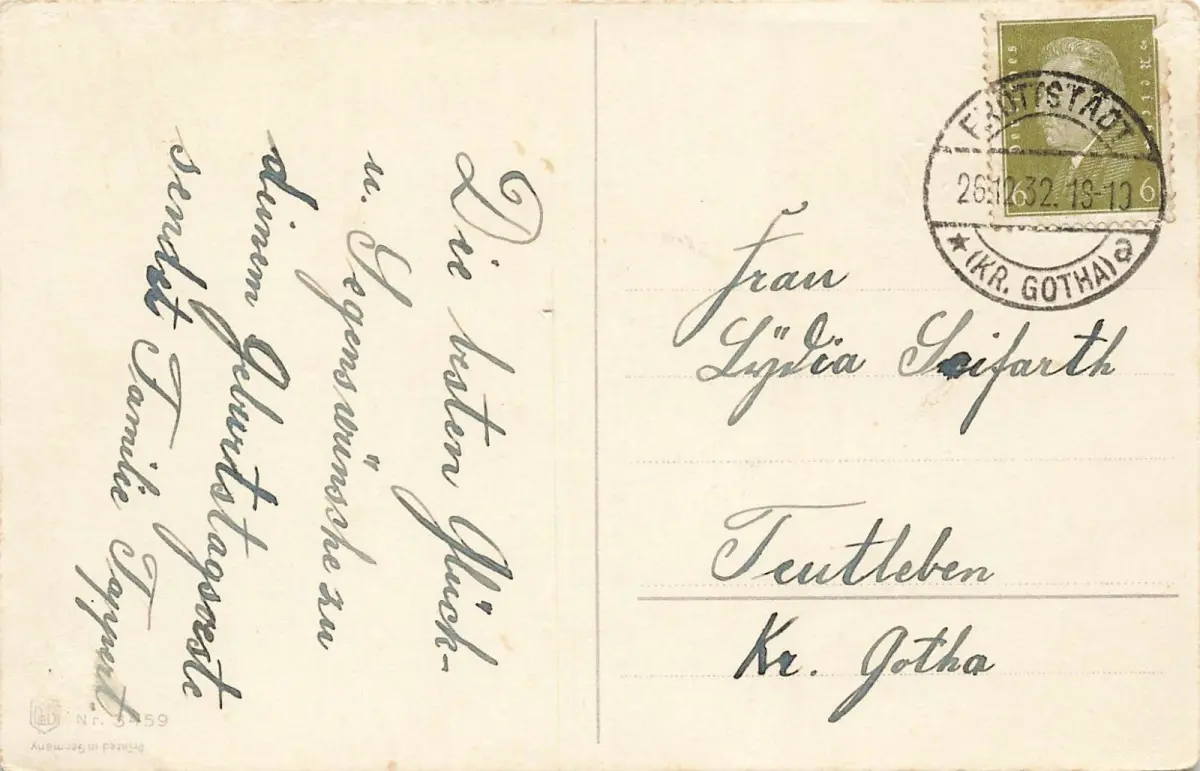 Die besten Glück-
u. Segenswünsche zu
deinem Geburtstagsfeste
sendet Familie Tappert.
Frau
Lydia Seifarth
Teutleben
Kr. Gotha
FRÖTTSTÄDT
26.12.32.18-19
★ (KR. GOTHA) a
6 6
Nr. 3459
Printed in Germany